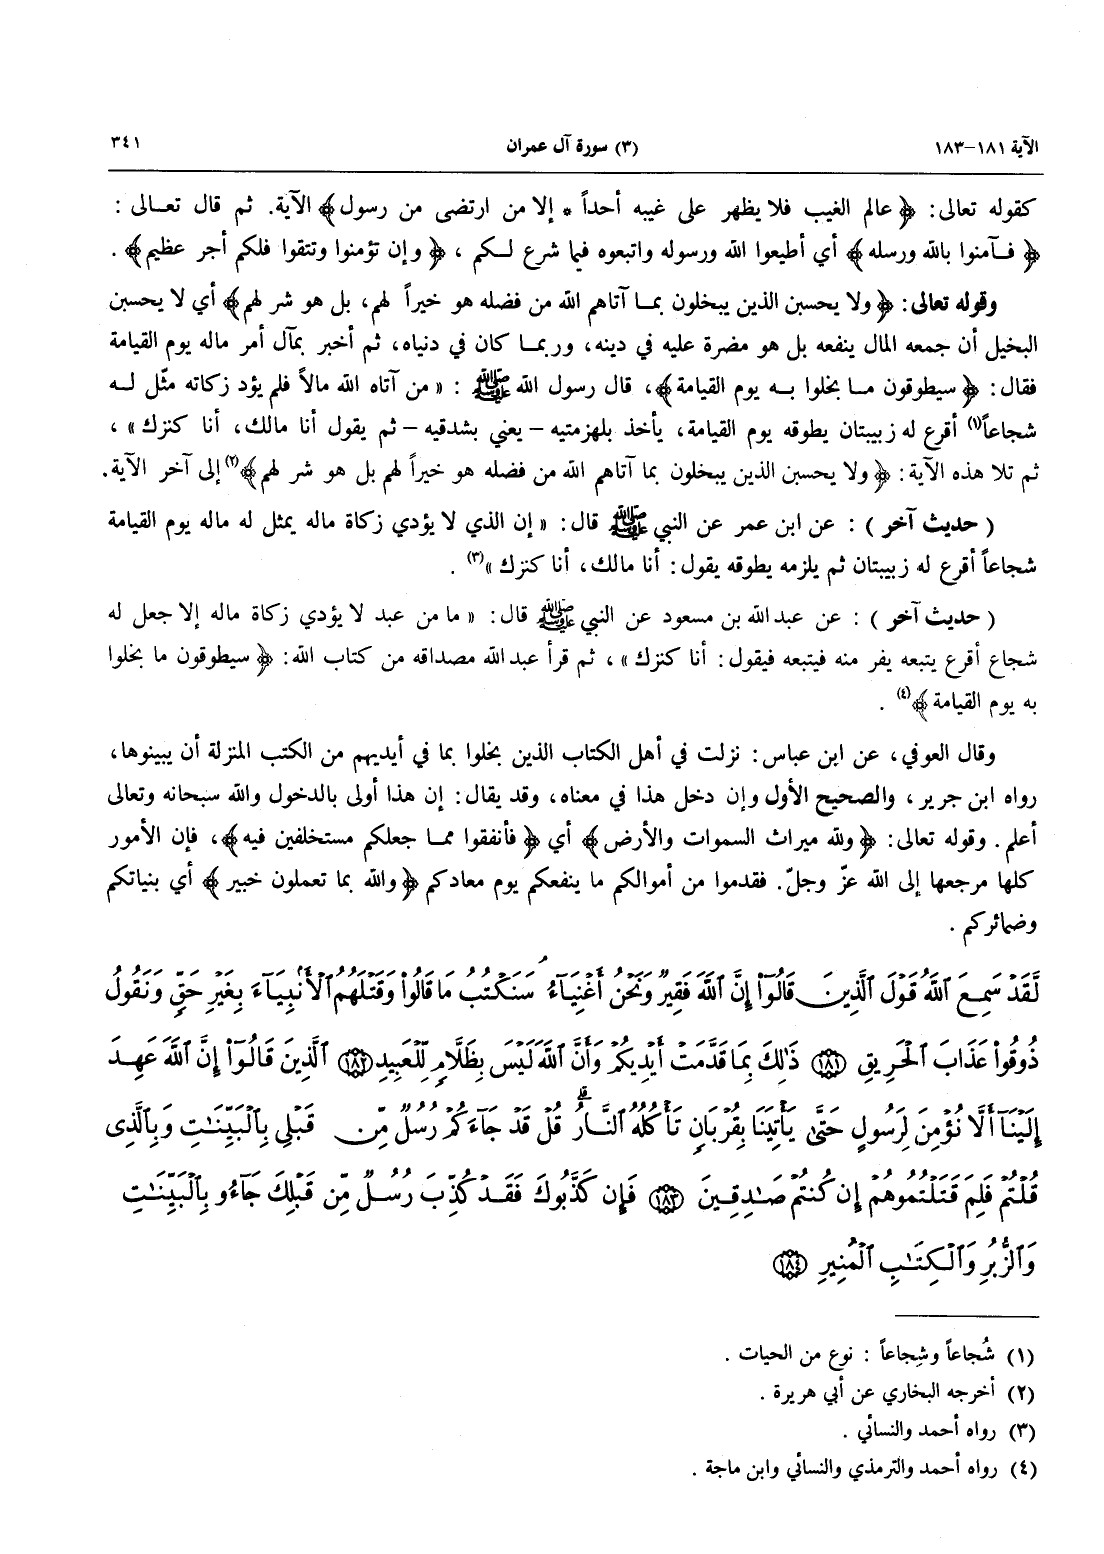 الآية ١٨١-١٨٣
(٣) سورة آل عمران
٣٤١
كقوله تعالى: ﴿عالم الغيب فلا يظهر على غيبه أحداً * إلا من ارتضى من رسول﴾ الآية. ثم قال تعالى :
﴿ فآمنوا بالله ورسله﴾ أي أطيعوا الله ورسوله واتبعوه فيما شرع لكم ، ﴿ وإن تؤمنوا وتتقوا فلكم أجر عظيم﴾ .
وقوله تعالى: ﴿ ولا يحسبن الذين يبخلون بما آتاهم الله من فضله هو خيراً لهم، بل هو شر لهم﴾ أي لا يحسبن
البخيل أن جمعه المال ينفعه بل هو مضرة عليه في دينه، وربما كان في دنياه، ثم أخبر بمآل أمر ماله يوم القيامة
فقال: ﴿ سيطوقون ما بخلوا به يوم القيامة﴾، قال رسول الله ﷺ : « من آتاه الله مالاً فلم يؤد زكاته مثّل له
شجاعاً(١) أقرع له زبيبتان يطوقه يوم القيامة، يأخذ بلهزمتيه - يعني بشدقيه - ثم يقول أنا مالك، أنا كنزك» ،
ثم تلا هذه الآية: ﴿ ولا يحسبن الذين يبخلون بما آتاهم الله من فضله هو خيراً لهم بل هو شر لهم﴾(٢) إلى آخر الآية.
( حديث آخر ) : عن ابن عمر عن النبي ﷺ قال: « إن الذي لا يؤدي زكاة ماله يمثل له ماله يوم القيامة
شجاعاً أقرع له زبيبتان ثم يلزمه يطوقه يقول: أنا مالك، أنا كنزك »(٣) .
( حديث آخر ) : عن عبدالله بن مسعود عن النبي ﷺ قال: « ما من عبد لا يؤدي زكاة ماله إلا جعل له
شجاع أقرع يتبعه يفر منه فيتبعه فيقول: أنا كنزك» ، ثم قرأ عبدالله مصداقه من كتاب الله: ﴿ سيطوقون ما بخلوا
به يوم القيامة ﴾(٤) .
وقال العوفي، عن ابن عباس: نزلت في أهل الكتاب الذين بخلوا بما في أيديهم من الكتب المنزلة أن يبينوها،
رواه ابن جرير ، والصحيح الأول وإن دخل هذا في معناه، وقد يقال: إن هذا أولى بالدخول والله سبحانه وتعالى
أعلم. وقوله تعالى: ﴿ ولله ميراث السموات والأرض﴾ أي ﴿ فأنفقوا مما جعلكم مستخلفين فيه﴾، فإن الأمور
كلها مرجعها إلى الله عزّ وجلّ. فقدموا من أموالكم ما ينفعكم يوم معادكم ﴿ والله بما تعملون خبير ﴾ أي بنياتكم
وضمائركم .
لَّقَدْ سَمِعَ ٱللَّهُ قَوْلَ ٱلَّذِينَ قَالُوٓا۟ إِنَّ ٱللَّهَ فَقِيرٌ وَنَحْنُ أَغْنِيَآءُ سَنَكْتُبُ مَا قَالُوا۟ وَقَتْلَهُمُ ٱلْأَنۢبِيَآءَ بِغَيْرِ حَقٍّ وَنَقُولُ
ذُوقُوا۟ عَذَابَ ٱلْحَرِيقِ ۝١٨١ ذَٰلِكَ بِمَا قَدَّمَتْ أَيْدِيكُمْ وَأَنَّ ٱللَّهَ لَيْسَ بِظَلَّامٍ لِّلْعَبِيدِ ۝١٨٢ ٱلَّذِينَ قَالُوٓا۟ إِنَّ ٱللَّهَ عَهِدَ
إِلَيْنَآ أَلَّا نُؤْمِنَ لِرَسُولٍ حَتَّىٰ يَأْتِيَنَا بِقُرْبَانٍ تَأْكُلُهُ ٱلنَّارُ ۗ قُلْ قَدْ جَآءَكُمْ رُسُلٌ مِّن قَبْلِى بِٱلْبَيِّنَٰتِ وَبِٱلَّذِى
قُلْتُمْ فَلِمَ قَتَلْتُمُوهُمْ إِن كُنتُمْ صَٰدِقِينَ ۝١٨٣ فَإِن كَذَّبُوكَ فَقَدْ كُذِّبَ رُسُلٌ مِّن قَبْلِكَ جَآءُو بِٱلْبَيِّنَٰتِ
وَٱلزُّبُرِ وَٱلْكِتَٰبِ ٱلْمُنِيرِ ۝١٨٤
(١) شُجاعاً وشِجاعاً : نوع من الحيات .
(٢) أخرجه البخاري عن أبي هريرة .
(٣) رواه أحمد والنسائي .
(٤) رواه أحمد والترمذي والنسائي وابن ماجة .